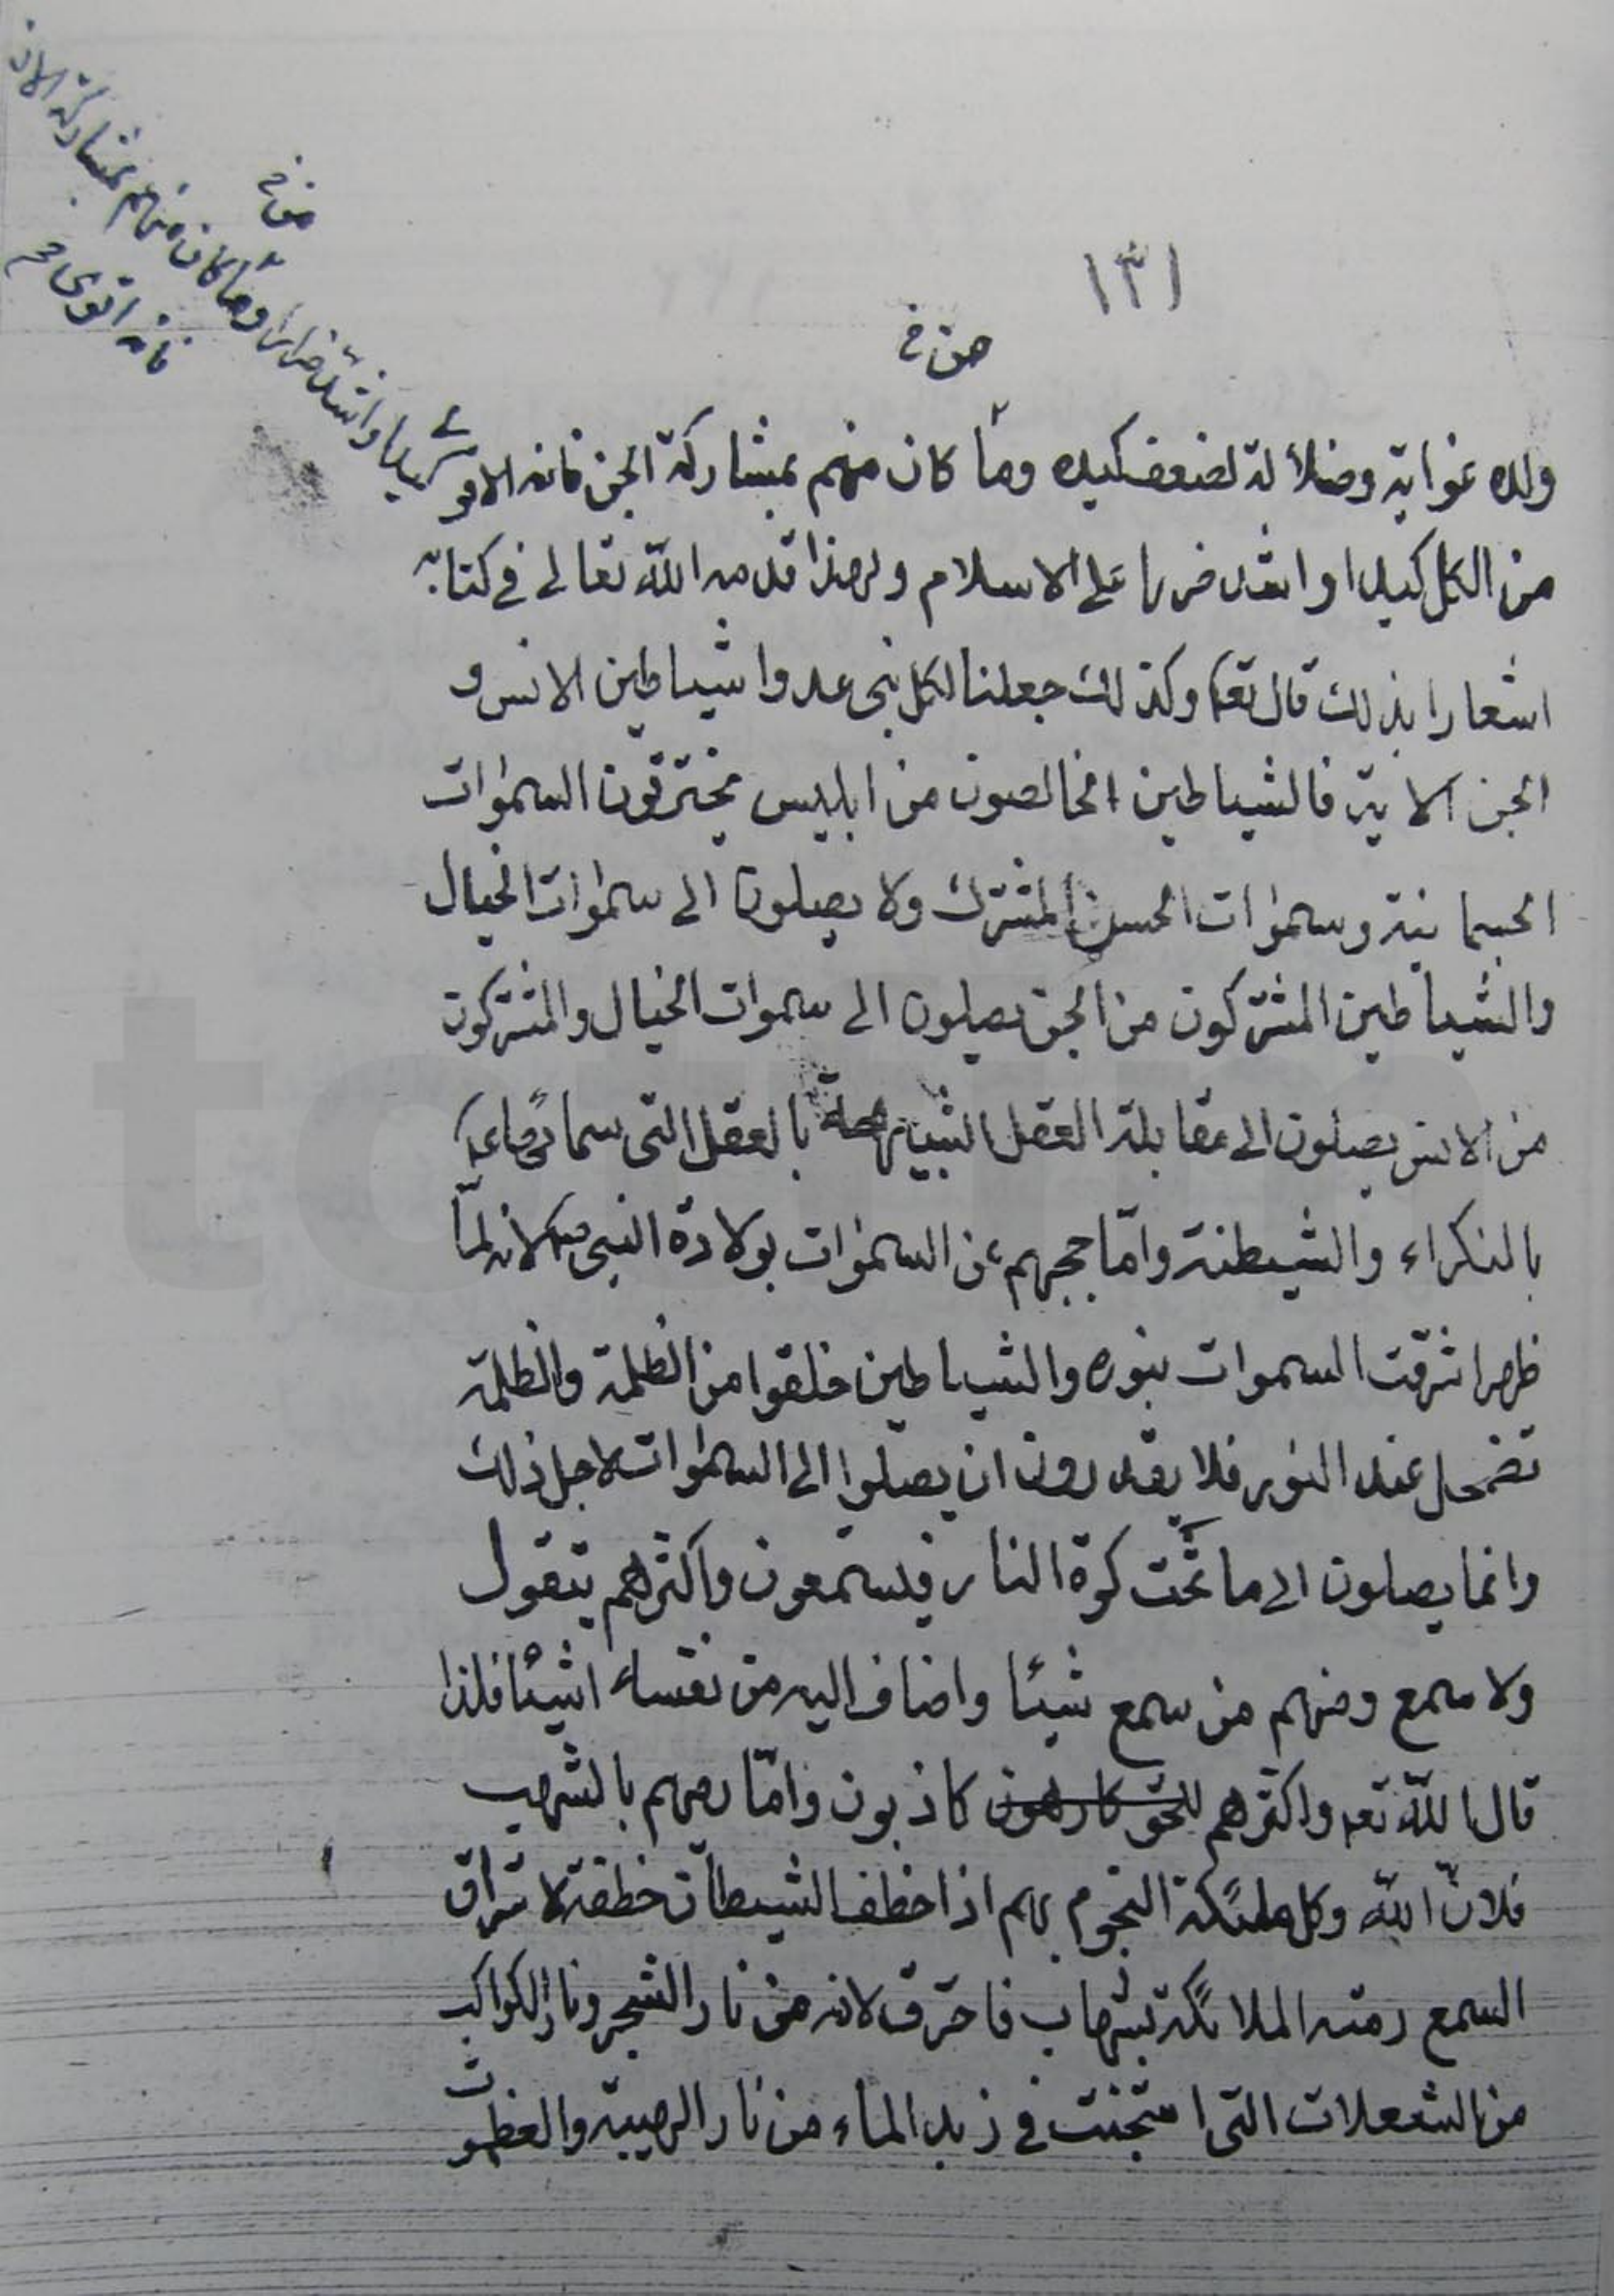 ١٣١
من خ
ولده غواية وضلالة لضعف كيده وما كان منهم بمشاركة الجن فانه الاقوى
من الكل كيدا واشد ضررا على الاسلام ولهذا قدمه الله تعالى في كتابه
اشعارا بذلك قال تعا وكذلك جعلنا لكل نبى عدوا شياطين الانس و
الجن الاية فالشياطين الخالصون من ابليس يخترقون السموات
الجسمانية وسموات الحس المشترك ولا يصلون الى سموات الخيال
والشياطين المشتركون من الجن يصلون الى سموات الخيال والمشتركون
من الانس يصلون الى مقابلة العقل الشبيهة بالعقل التى سماها ع
بالنكراء والشيطنة واما حجبهم عن السموات بولادة النبى ص لانه لمّا
ظهر اشرقت السموات بنوره والشياطين خلقوا من الظلمة والظلمة
تضمحل عند النور فلا يقدرون ان يصلوا الى السموات لاجل ذلك
وانما يصلون الى ما تحت كرة النار فيستمعون واكثرهم يتقول
ولا سمع ومنهم من سمع شيئا واضاف اليه من نفسه اشيئا فلذا
قال الله تعا واكثرهم للحق كارهون كاذبون وامّا رميهم بالشهب
فلانّ الله وكل ملئكة النجوم بهم اذا خطف الشيطان خطفة لاستراق
السمع رمته الملائكة بشهاب فاحترق لانه من نار الشجر ونار الكواكب
من الشعلات التى استجنت في زبد الماء من نار الهيبة والعظموت
من خ
كيدا واشد ضررا وما كان منهم بمشاركة الان
فانه اقوى م